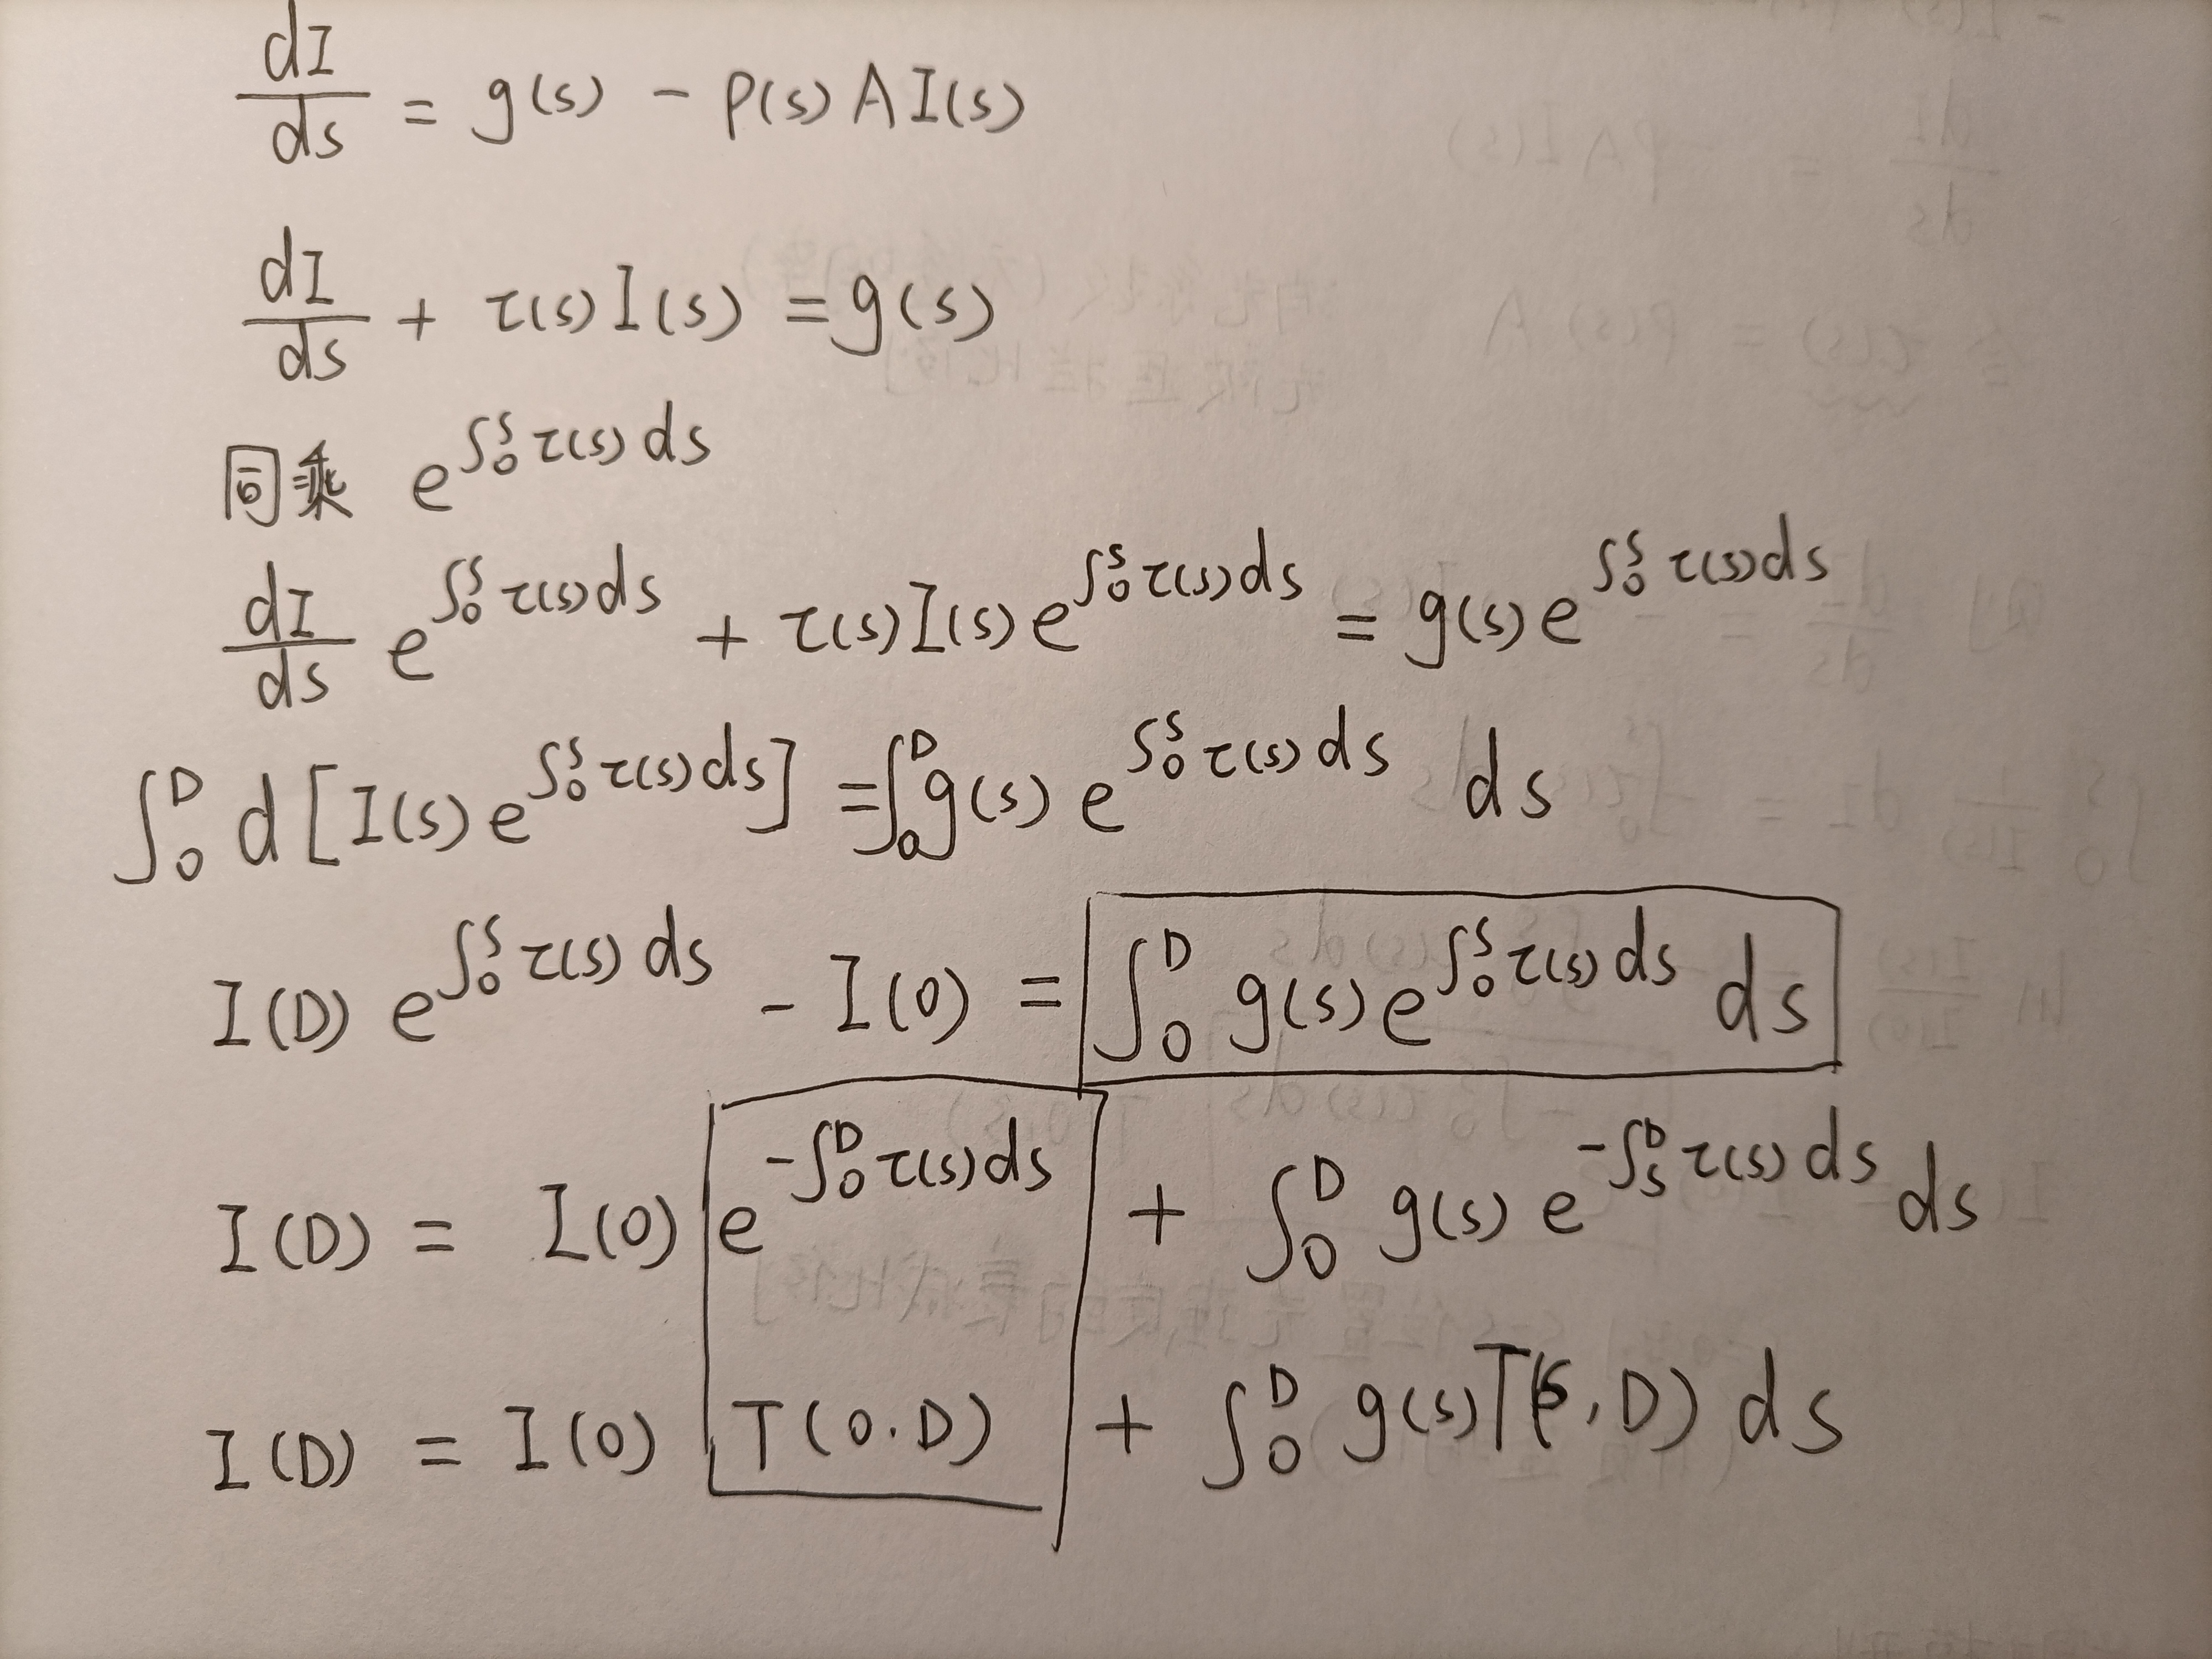 dI/ds = g(s) - ρ(s) A I(s)
dI/ds + τ(s) I(s) = g(s)
同乘 e^{∫_0^s τ(s) ds}
dI/ds e^{∫_0^s τ(s) ds} + τ(s) I(s) e^{∫_0^s τ(s) ds} = g(s) e^{∫_0^s τ(s) ds}
∫_0^D d [I(s) e^{∫_0^s τ(s) ds}] = ∫_0^D g(s) e^{∫_0^s τ(s) ds} ds
I(D) e^{∫_0^s τ(s) ds} - I(0) = ∫_0^D g(s) e^{∫_0^s τ(s) ds} ds
I(D) = I(0) e^{-∫_0^D τ(s) ds} + ∫_0^D g(s) e^{-∫_s^D τ(s) ds} ds
I(D) = I(0) T(0.D) + ∫_0^D g(s) T(s,D) ds